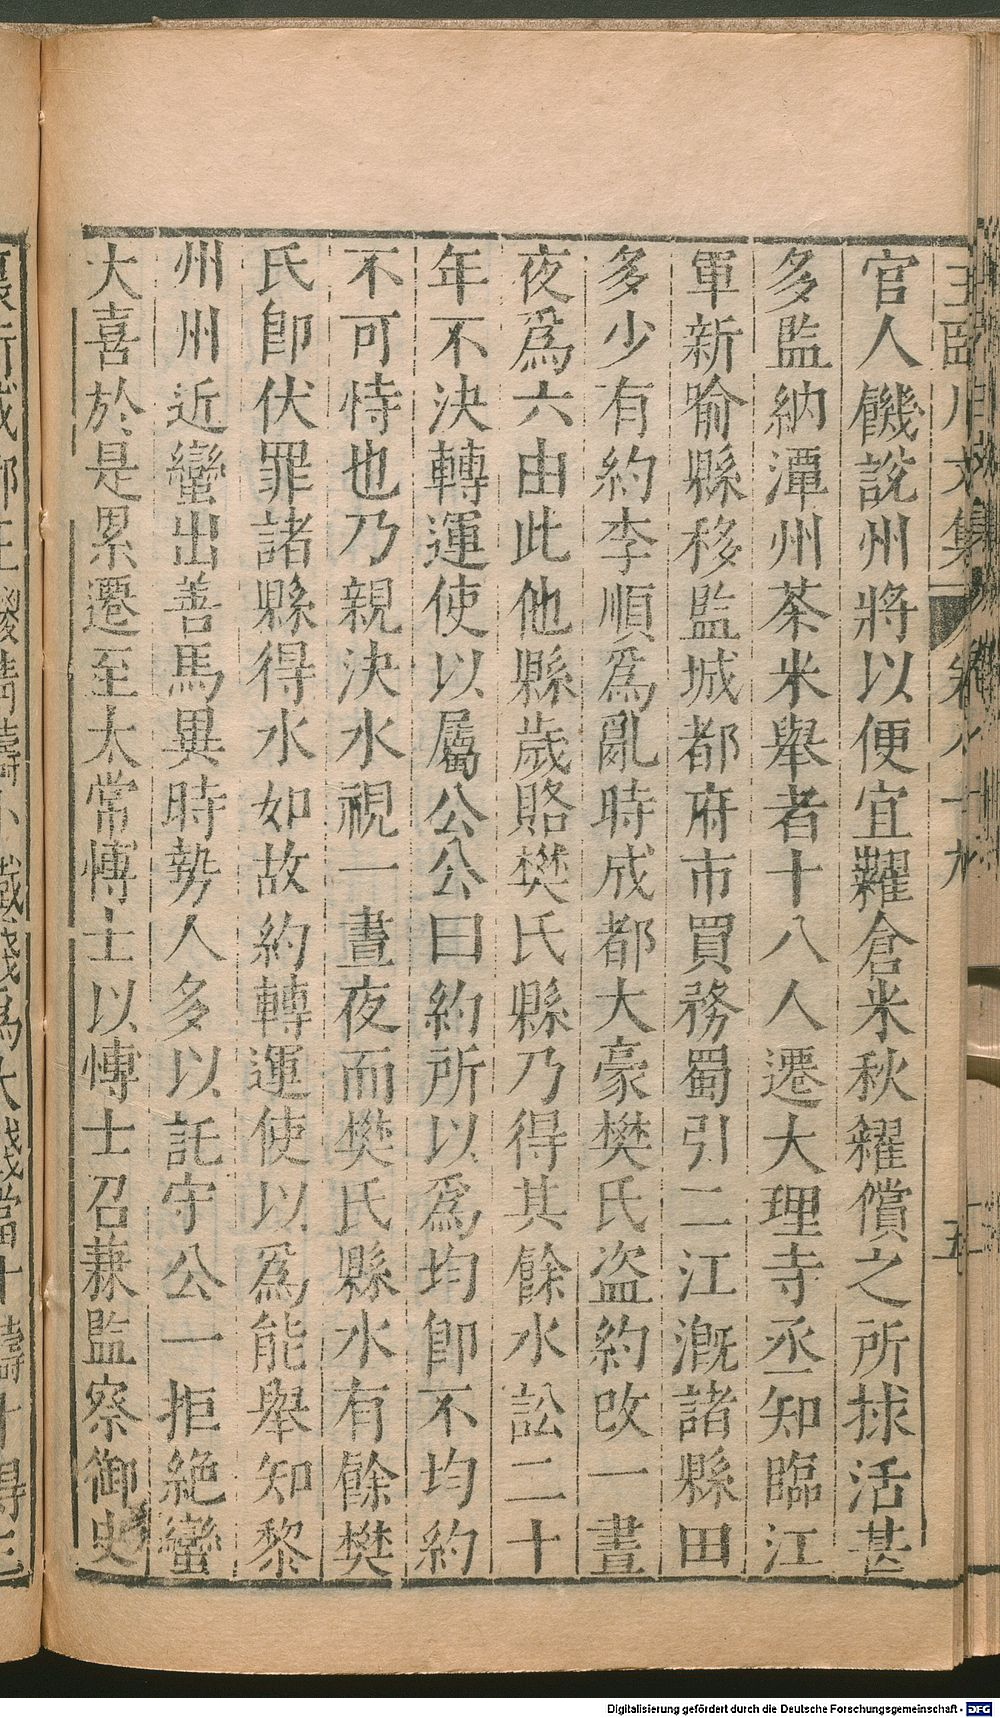 官人饑說州將以便宜糶倉米秋糴償之所捄活甚
多監納潭州茶米舉者十八人遷大理寺丞知臨江
軍新喻縣移監城都府市買務蜀引二江漑諸縣田
多少有約李順爲亂時成都大豪樊氏盜約改一晝
夜爲六由此他縣歲賂樊氏縣乃得其餘水訟二十
年不決轉運使以屬公公曰約所以爲均卽不均約
不可恃也乃親決水視一晝夜而樊氏縣水有餘樊
氏卽伏罪諸縣得水如故約轉運使以爲能舉知黎
州州近蠻出善馬異時勢人多以託守公一拒絶蠻
大喜於是累遷至太常博士以博士召兼監察御史
Digitalisierung gefördert durch die Deutsche Forschungsgemeinschaft - DFG